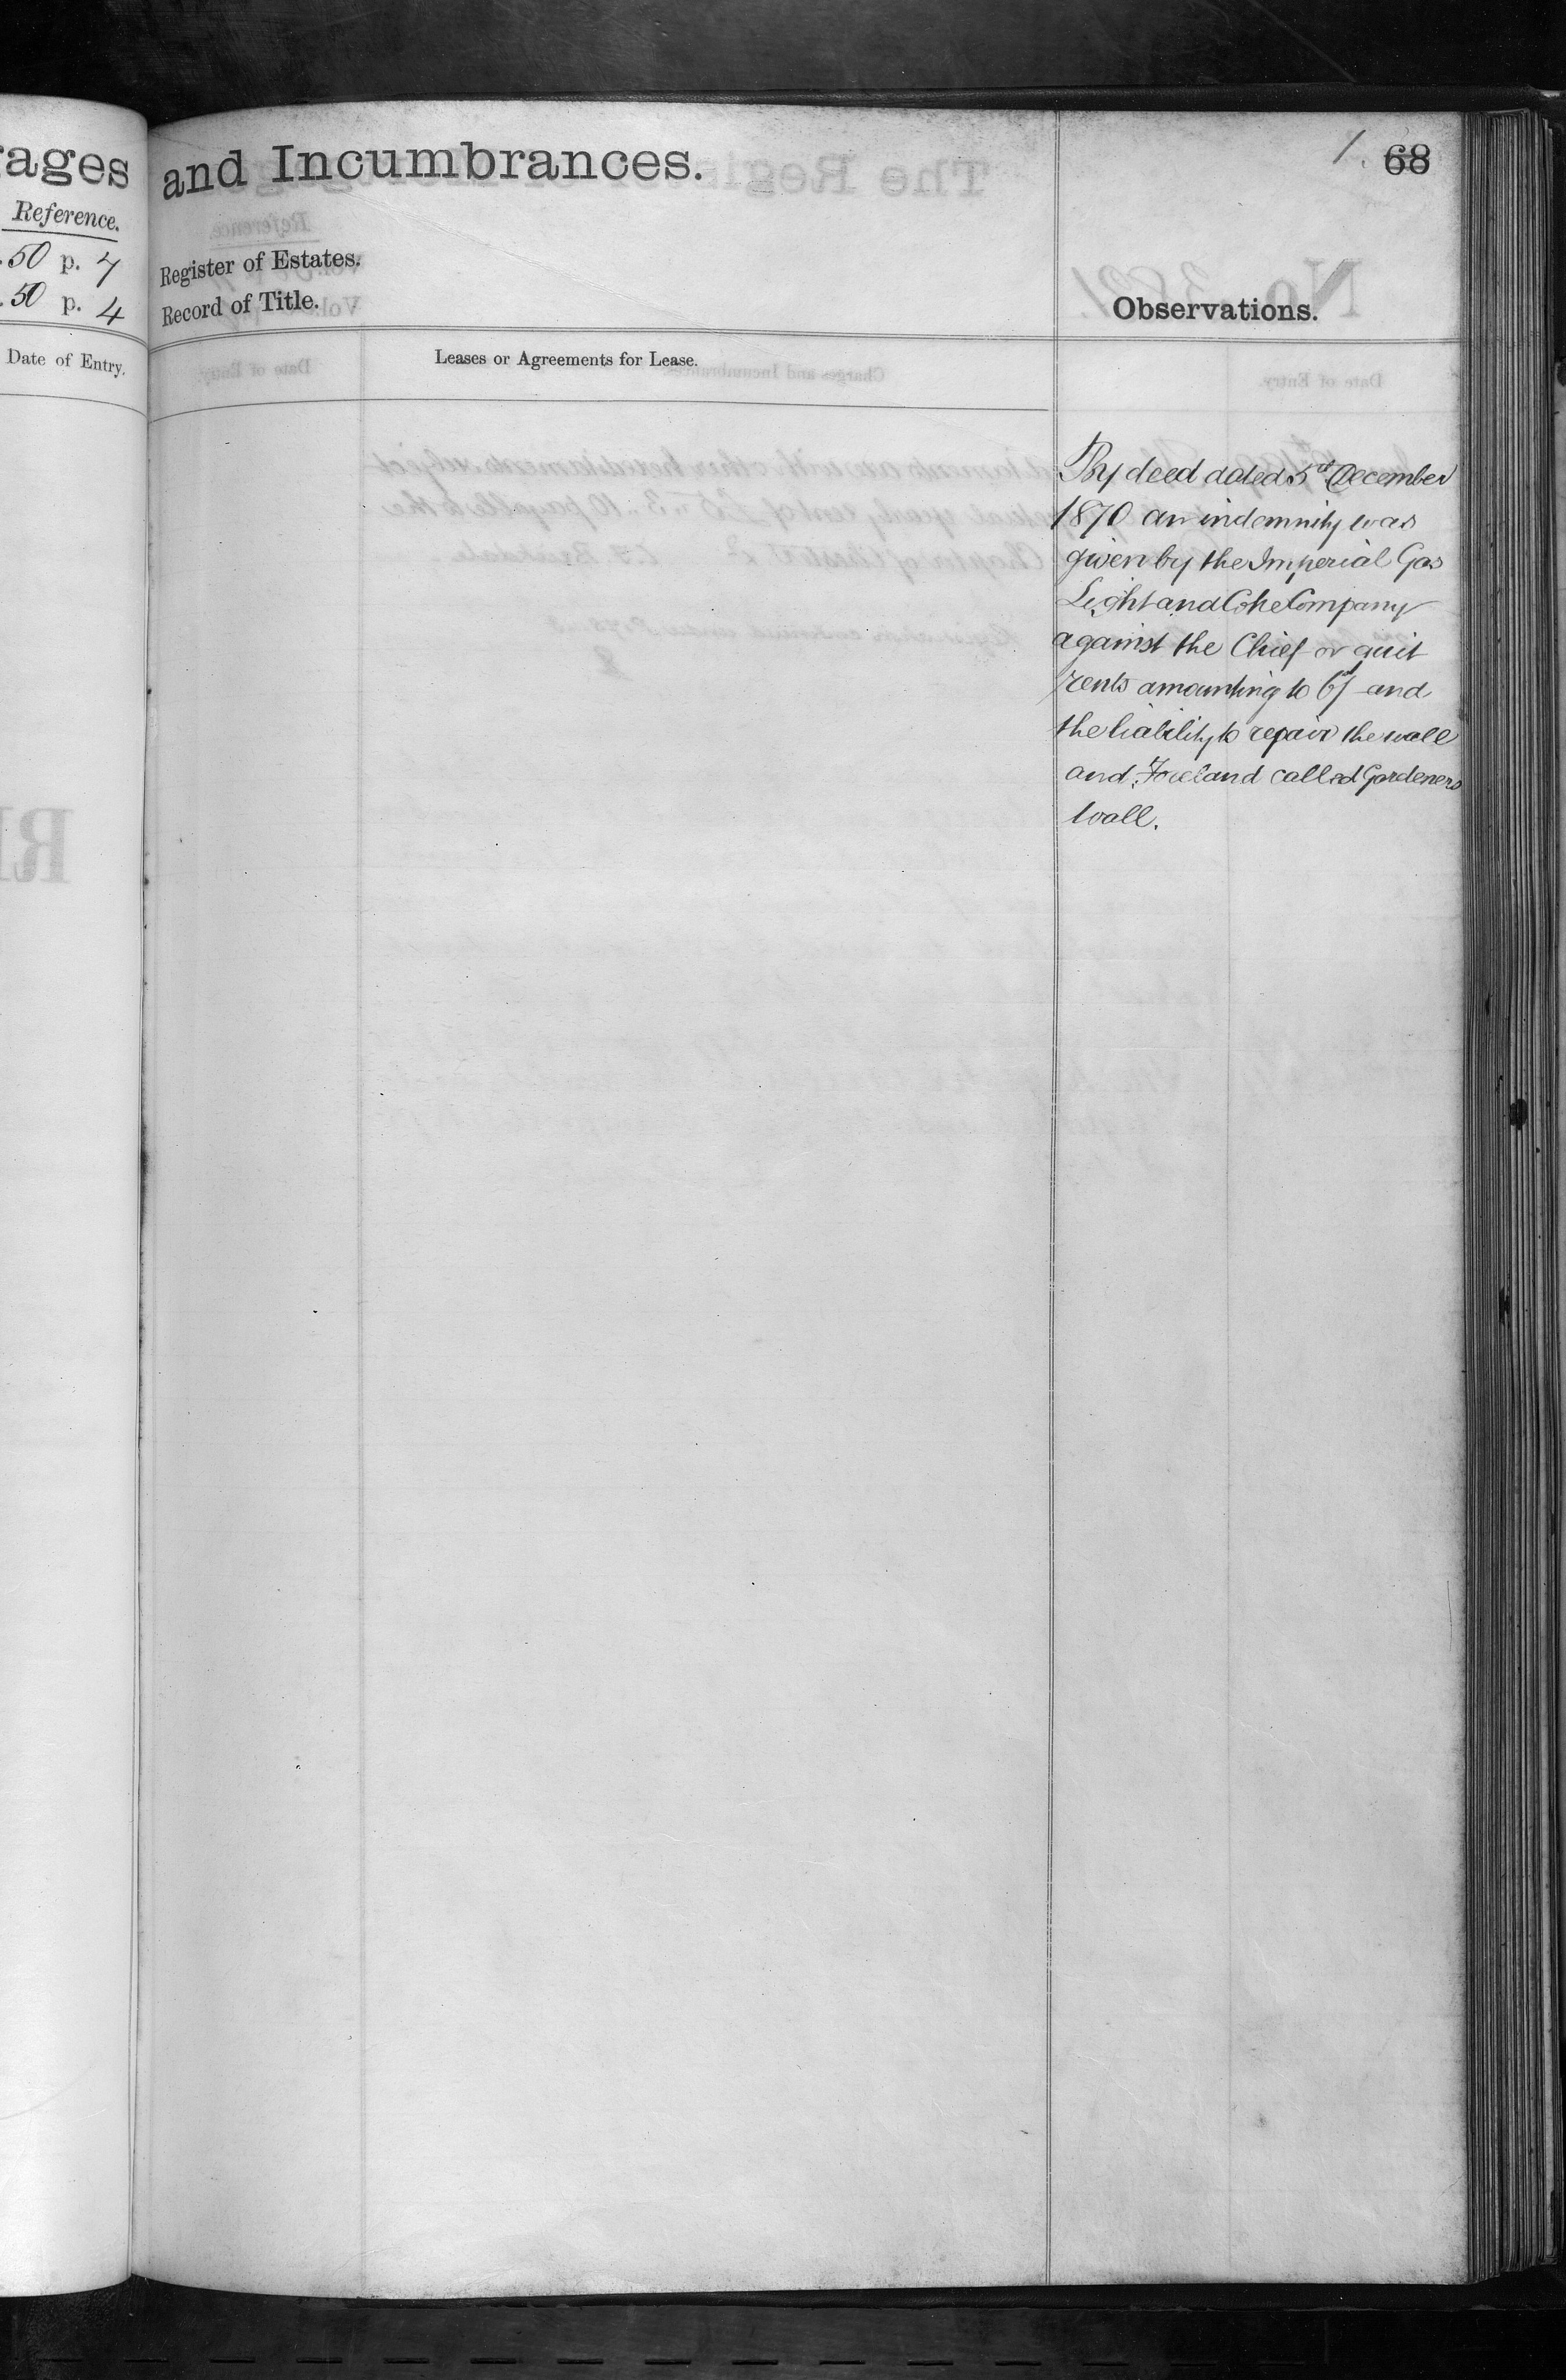 rages
Reference.
. 50 p. 7
. 50 p. 4
Date of Entry.
and Incumbrances.
1. 68
Register of Estates.
Record of Title.
Observations.
Leases or Agreements for Lease.
By deed dated 5th December
1870 an indemnity was
given by the Imperial Gas
Light and Coke Company
against the Chief or quit
rents amounting to and
the liability to repair the wall
and called Gardeners
Wall.